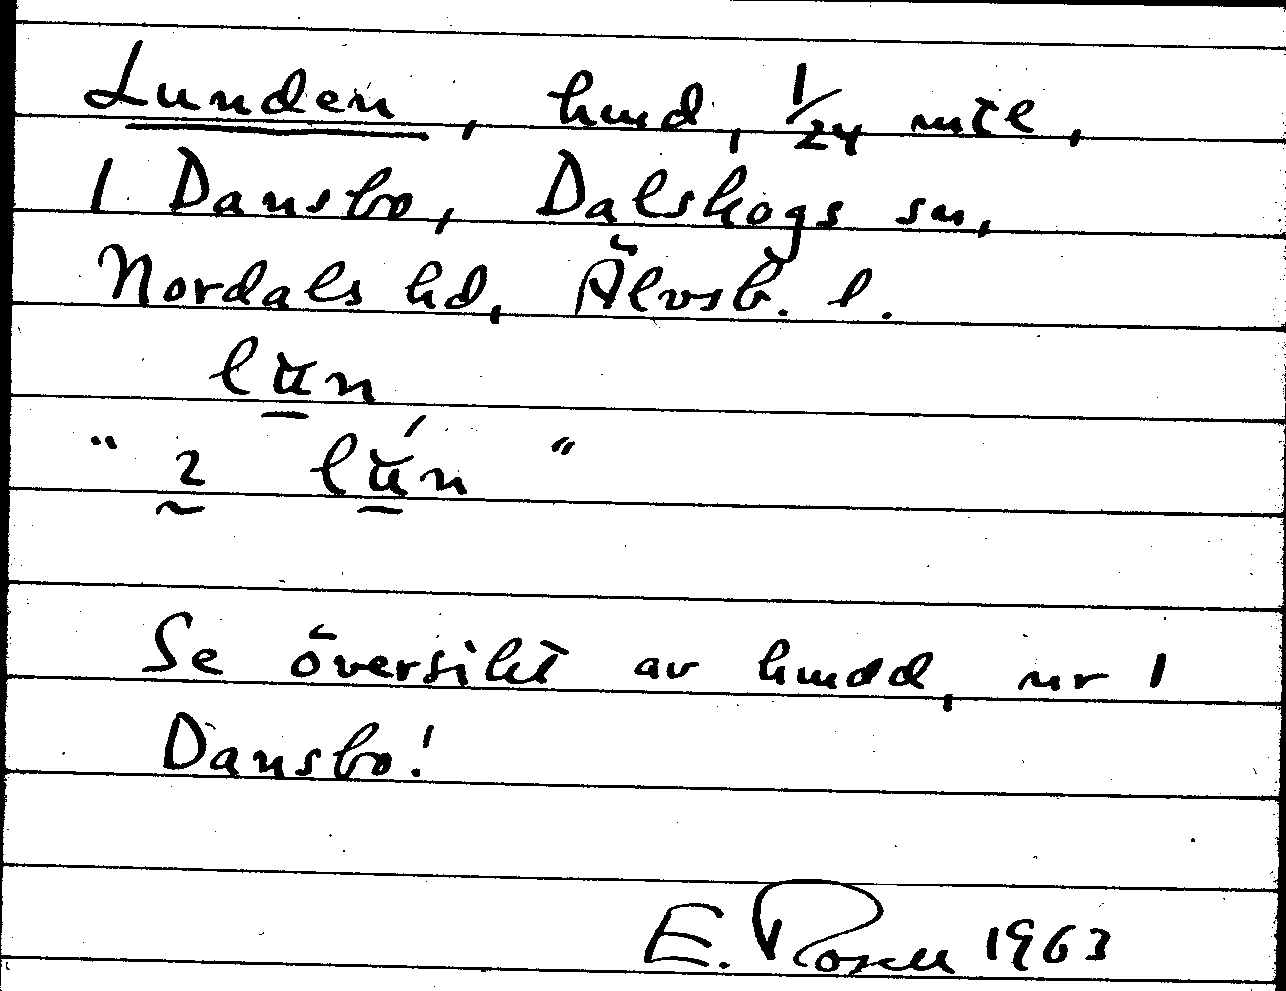 Lunden, hmd, 1/24 mtl,
1 Dansbo, Dalskogs sn,
Nordals hd, Älvsb. l.
lu̲n
" 2 lú̲n "
Se översikt av hmdd, nr 1
Dansbo!
E. Rosell 1963